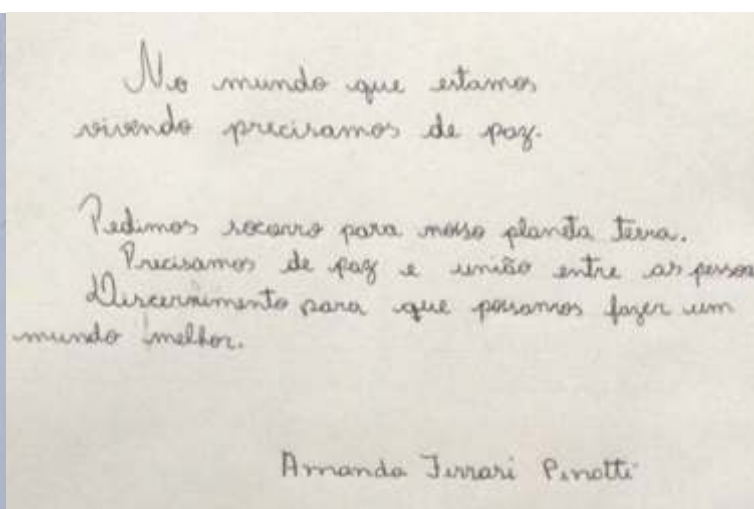 No mundo que estamos
vivendo precisamos de paz.
Pedimos socorro para nosso planeta terra.
Precisamos de paz e união entre as pessoa
Discernimento para que possamos fazer um
mundo melhor.
Amanda Ferrari Penotti